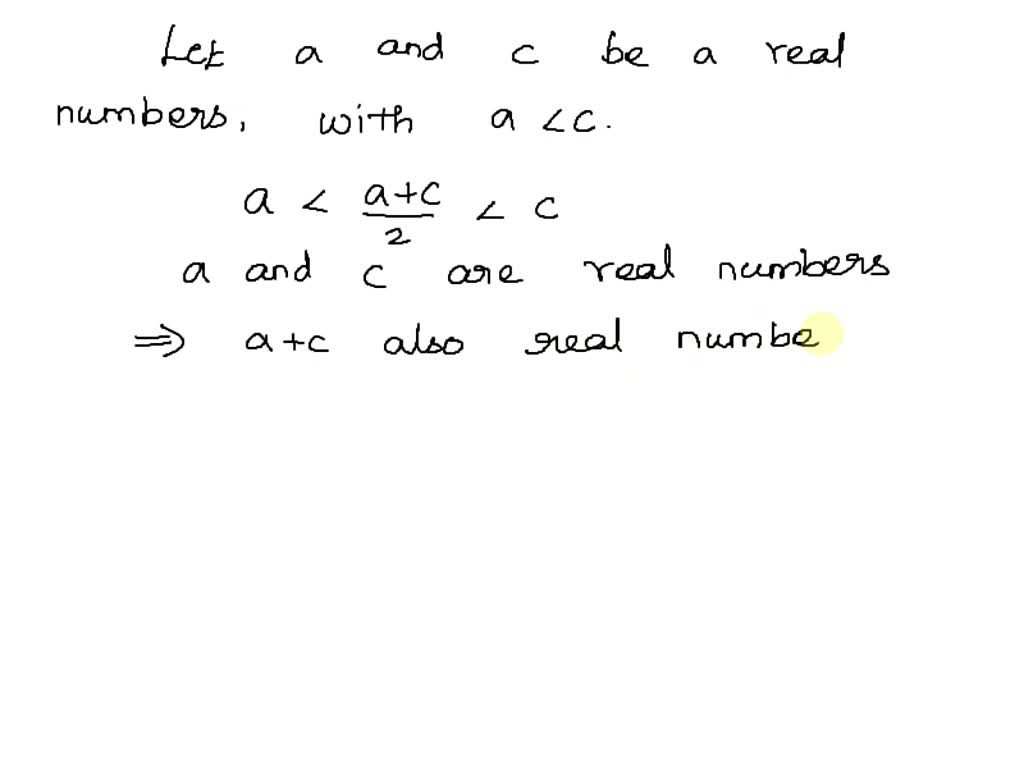 Let a and c be a real
numbers, with a < c.
a < (a+c)/2 < c
a and c are real numbers
⇒ a+c also real numbe